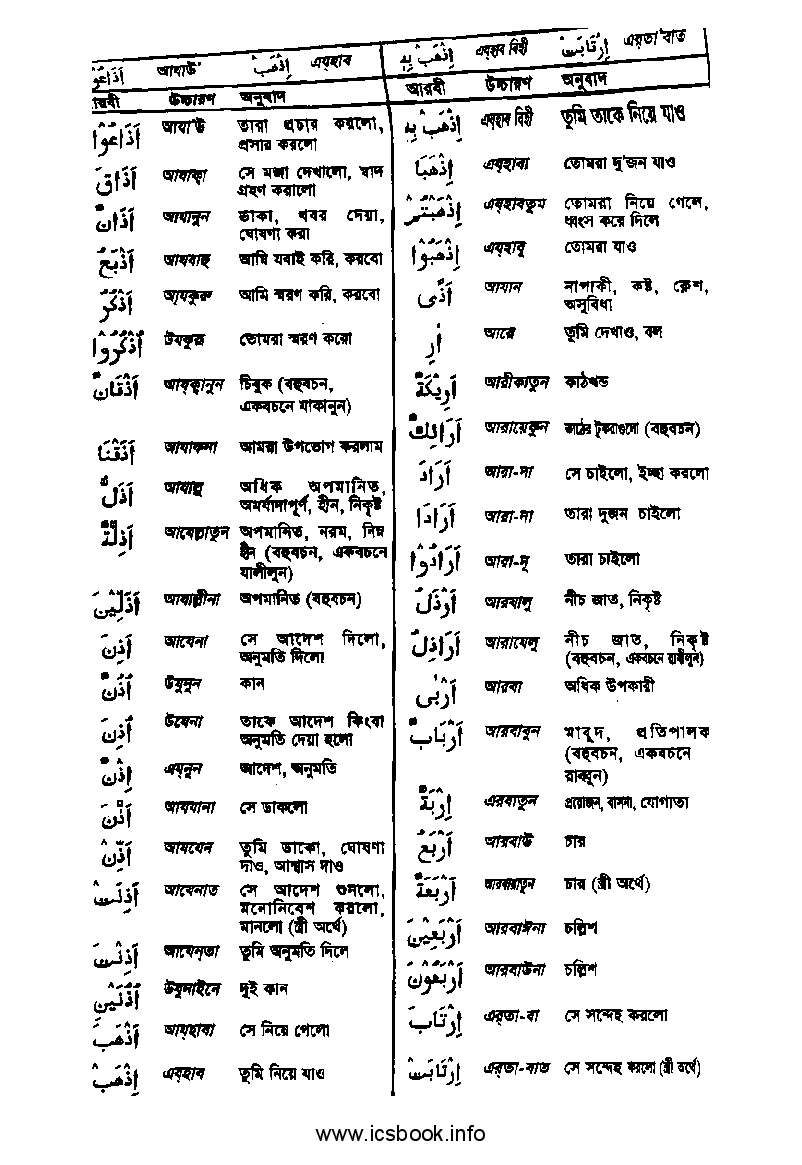 اَذَاعُوْا আযাউ' اِذْهَبْ এয্হাব
আরবী উচ্চারণ অনুবাদ
اَذَاعُوْا আযা'উ তারা প্রচার করলো,
প্রসার করলো
اَذَاقَ আযাক্বা সে মজা দেখালো, স্বাদ
গ্রহণ করালো
اَذَانٌ আযানুন ডাকা, খবর দেয়া,
ঘোষণা করা
اَذْبَحُ আযবাহু আমি যবাই করি, করবো
اَذْكُرُ আয্কুরু আমি স্মরণ করি, করবো
اُذْكُرُوْا উযকুরূ তোমরা স্মরণ করো
اَذْقَانٌ আয্ক্বানুন চিবুক (বহুবচন,
একবচনে যাকানুন)
اَذَقْنَا আযাকনা আমরা উপভোগ করলাম
اَذَلُّ আযাল্লু অধিক অপমানিত,
অমর্যাদাপূর্ণ, হীন, নিকৃষ্ট
اَذِلَّةٌ আযেল্লাতুন অপমানিত, নরম, নিম্ন
হীন (বহুবচন, একবচনে
যালীলুন)
اَذَلِّيْنَ আযাল্লীনা অপমানিত (বহুবচন)
اَذِنَ আযেনা সে আদেশ দিলো,
অনুমতি দিলো
اُذُنٌ উযুনুন কান
اُذِنَ উযেনা তাকে আদেশ কিংবা
অনুমতি দেয়া হলো
اِذْنٌ এয্নুন আদেশ, অনুমতি
اَذَّنَ আয্যানা সে ডাকলো
اَذِّنْ আয্যেন তুমি ডাকো, ঘোষণা
দাও, আশ্বাস দাও
اَذِنَتْ আযেনাত সে আদেশ শুনলো,
মনোনিবেশ করলো,
মানলো (স্ত্রী অর্থে)
اَذِنْتَ আযেন্তা তুমি অনুমতি দিলে
اُذُنَيْنِ উযুনাইনে দুই কান
اَذْهَبَ আয্হাবা সে নিয়ে গেলো
اِذْهَبْ এয্হাব তুমি নিয়ে যাও
اِذْهَبْ بِهٖ এয্হাব বিহী اِرْتَابَتْ এর্তা'বাত
আরবী উচ্চারণ অনুবাদ
اِذْهَبْ بِهٖ এয্হাব বিহী তুমি তাকে নিয়ে যাও
اِذْهَبَا এয্হাবা তোমরা দু'জন যাও
اِذْهَبْتُمْ এয্হাবতুম তোমরা নিয়ে গেলে,
ধ্বংস করে দিলে
اِذْهَبُوْا এয্হাবূ তোমরা যাও
اَذًى আযান নাপাকী, কষ্ট, ক্লেশ,
অসুবিধা
اَرِ আরে তুমি দেখাও, বল
اَرِيْكَةٌ আরীকাতুন কাঠখন্ড
اَرَائِكُ আরায়েকুন কাঠের টুকরাগুলো (বহুবচন)
اَرَادَ আরা-দা সে চাইলো, ইচ্ছা করলো
اَرَادَا আরা-দা তারা দুজন চাইলো
اَرَادُوْا আরা-দূ তারা চাইলো
اَرْذَلُ আরযালু নীচ জাত, নিকৃষ্ট
اَرَاذِلُ আরাযেলু নীচ জাত, নিকৃষ্ট
(বহুবচন, একবচনে রাযীলুন)
اَرْبٰى আরবা অধিক উপকারী
اَرْبَابٌ আরবাবুন মাবুদ, প্রতিপালক
(বহুবচন, একবচনে
রাব্বুন)
اِرْبَةٌ এরবাতুন প্রয়োজন, বাসনা, যোগ্যতা
اَرْبَعُ আরবাউ চার
اَرْبَعَةٌ আরবায়াতুন চার (স্ত্রী অর্থে)
اَرْبَعِيْنَ আরবাঈনা চল্লিশ
اَرْبَعُوْنَ আরবাউনা চল্লিশ
اِرْتَابَ এর্তা-বা সে সন্দেহ করলো
اِرْتَابَتْ এর্তা-বাত সে সন্দেহ করলো (স্ত্রী অর্থে)
www.icsbook.info